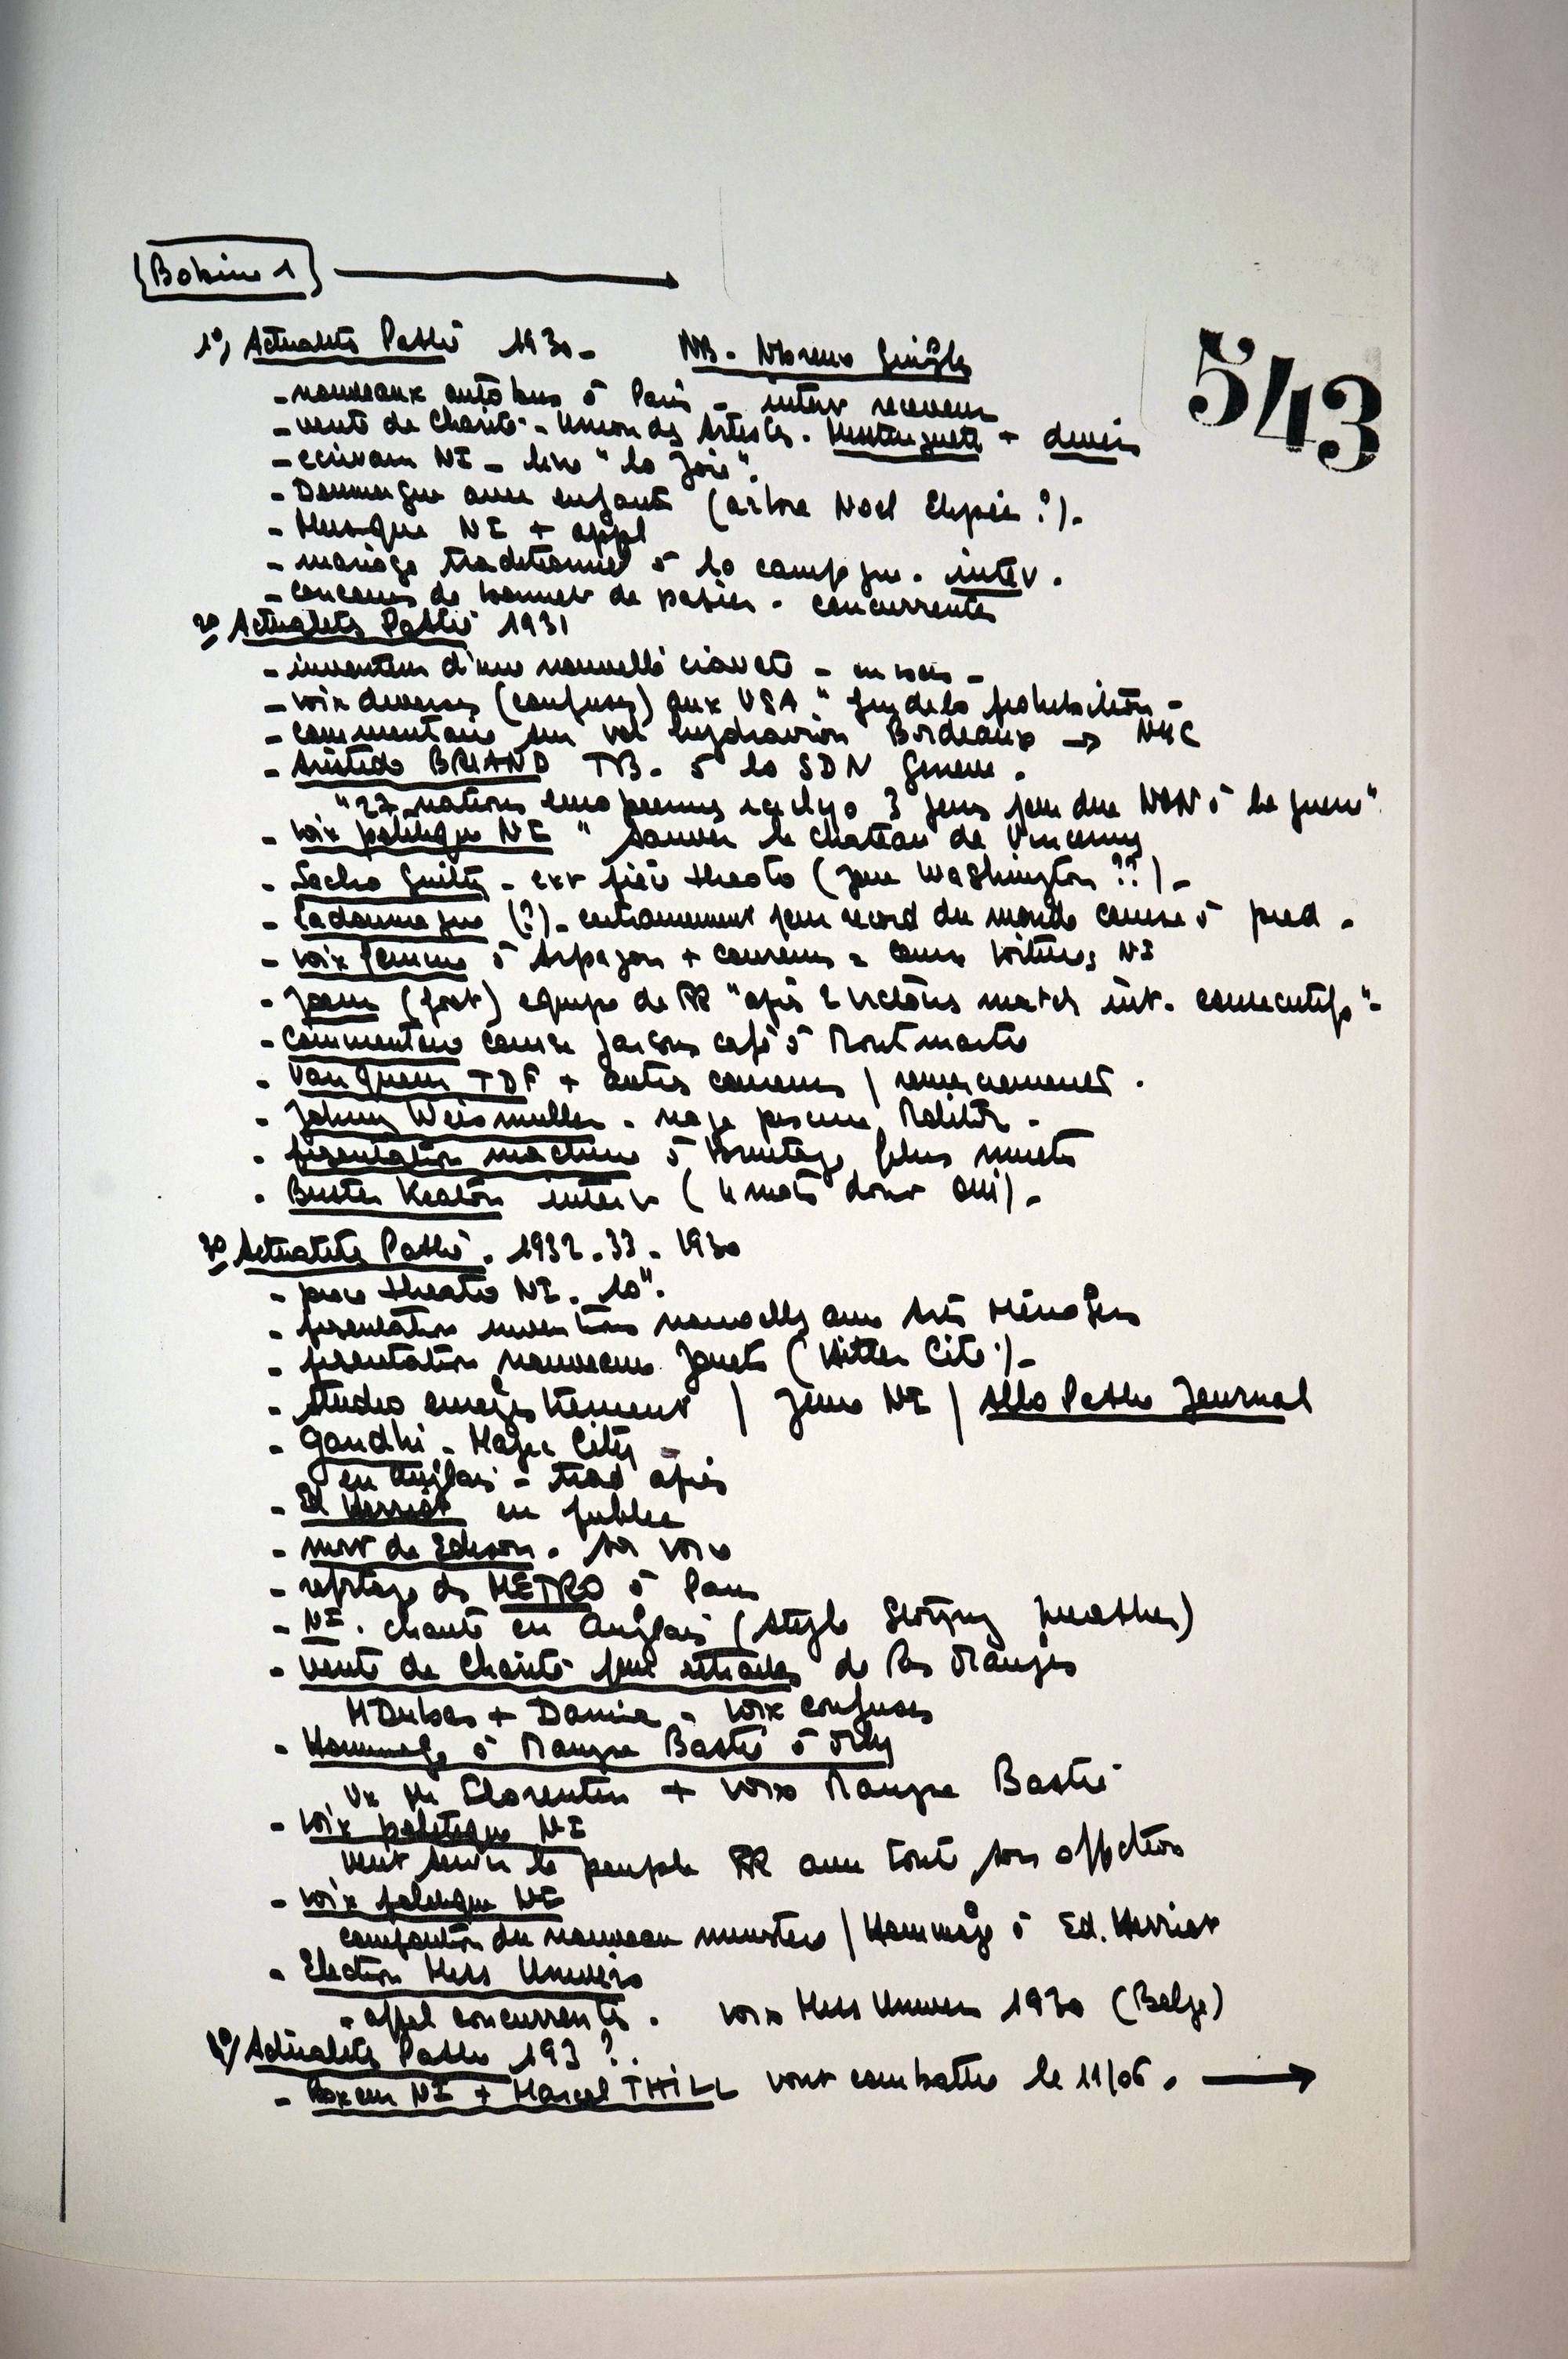 Bobine 1
543
1°) Actualités Pathé 1930 - NB.
- nouveaux autobus à Paris - interv receveur
- vente de Charité - Union des Artistes. Mistinguett + divers
- écrivain NI - livre "la Joie".
- Doumergue avec enfants (arbre Noel Elysée ?).
- Musique NI + appl
- mariage traditionnel à la campagne. interv.
- concours de bonnets de papier. concurrentes
2° Actualités Pathé 1931
- inventeur d'une nouvelle - en
- voix diverses (confuses) aux USA " fin de la prohibition -
- commentaire sur vol hydravion Bordeaux → NYC
- Aristide BRIAND TB. à la SDN Geneve.
"27 nations européennes il y a 3 jours pour dire NON à la guerre".
- voix politique NI " sauver le chateau de Vincennes
- Sacha Guitry - ext pièce théatre (pour Washington ??) -
- Ladoumegue (?) - entrainement pour record du monde course à pied -
- voix femme à Arpajon + coureurs = course voitures NI
- Joueur (foot) equipe de FR "après 2 victoires match int. consecutifs" -
- Commentaire course garçons café à Montmartre
- Vainqueur TDF + autres coureurs / remerciements.
- Johnny Weismuller. nage piscine Molitor -
- présentation machine à bruitage films muets
- Buster Keaton interv (4 mots dont oui) -
3° Actualités Pathé. 1932-33-1930
- piece théatre NI. 10".
- présentation inventions nouvelles aux Arts Ménagers
- présentation nouveaux Jouets ( )-
- studio enregistrement / NI / Allo Pathé Journal
- Gandhi - Magic City -
en Anglais - trad après
- Ed Herriot en public
- mort de Edison. sa voix
- reportage ds METRO à Paris
- NI. chante en Anglais (style
- vente de Charité pour retraités de Ris Orangis
M Dubas + Damia - voix confuses
- Hommage à Maryse Bastié à Orly
Vx Mr Florentin + voix Maryse Bastié
- voix politique NI
veut servir le peuple FR avec toute son affection
- voix politique NI
composition du nouveau ministère / Hommage à Ed. Herriot
- Election Miss Univers
- appel concurrentes. voix Miss Univers 1930 (Belge)
4°) Actualités Pathé 193 ?.
- Boxeur NI + Marcel THILL vont combattre le 11/06. →